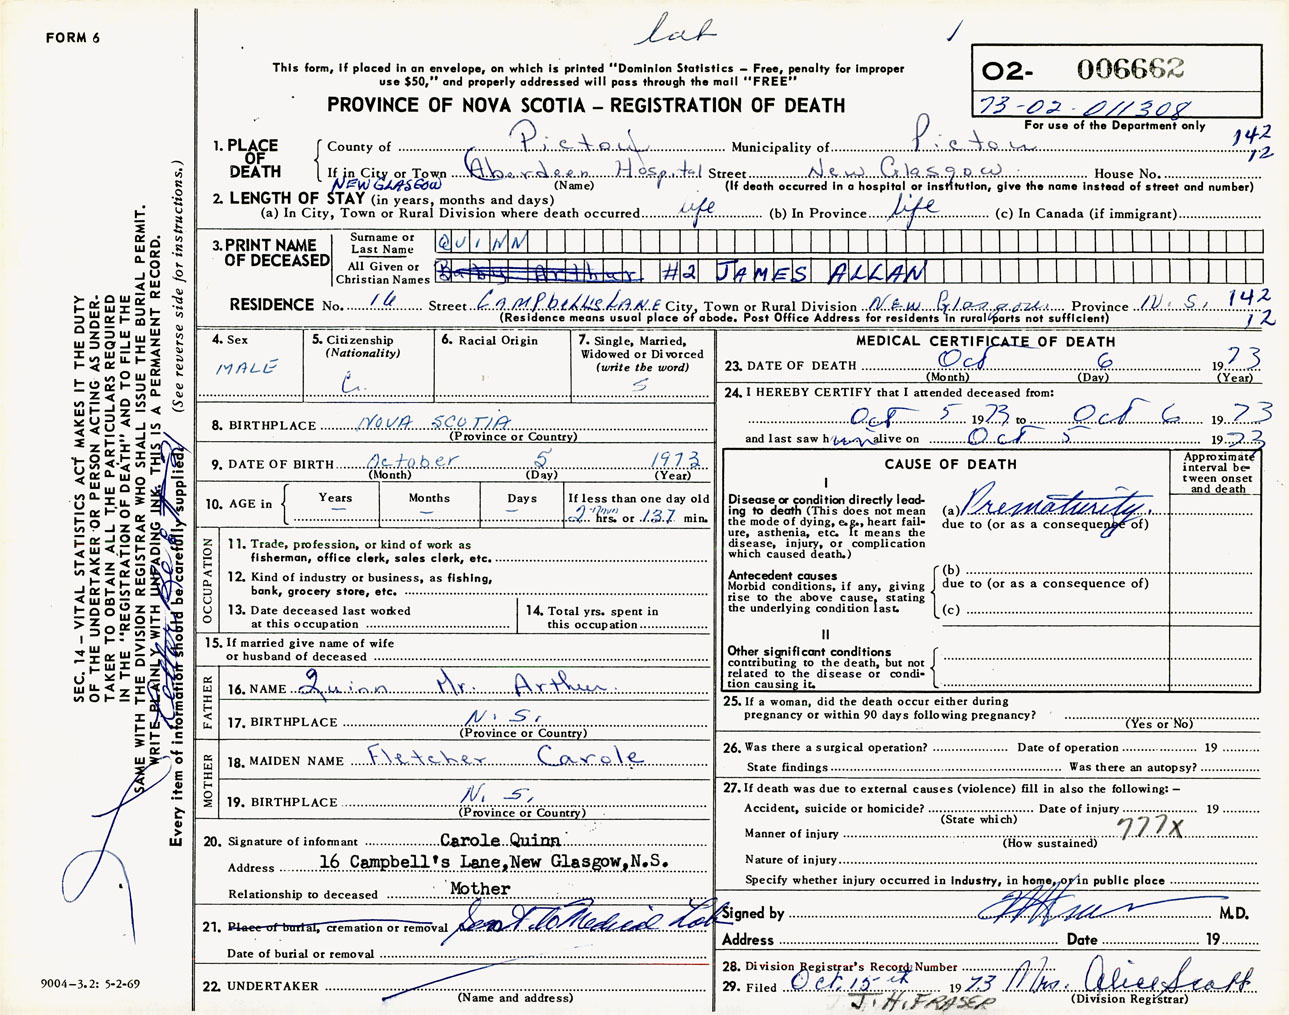 FORM 6
lab
1
This form, if placed in an envelope, on which is printed "Dominion Statistics – Free, penalty for improper
use $50," and properly addressed will pass through the mail "FREE"
O2- 006662
73-02-011308
For use of the Department only
PROVINCE OF NOVA SCOTIA – REGISTRATION OF DEATH
1. PLACE OF DEATH
County of Pictou Municipality of Pictou 142
12
If in City or Town Aberdeen Hospital Street New Glasgow House No.
NEW GLASGOW (Name) (If death occurred in a hospital or institution, give the name instead of street and number)
2. LENGTH OF STAY (in years, months and days)
(a) In City, Town or Rural Division where death occurred life (b) In Province life (c) In Canada (if immigrant)
3. PRINT NAME OF DECEASED
Surname or Last Name QUINN
All Given or Christian Names Baby Arthur #2 JAMES ALLAN
RESIDENCE No. 16 Street CAMPbellsLANE City, Town or Rural Division New Glasgow Province N.S. 142
12
(Residence means usual place of abode. Post Office Address for residents in rural parts not sufficient)
4. Sex
MALE
5. Citizenship
(Nationality)
C.
6. Racial Origin
7. Single, Married,
Widowed or Divorced
(write the word)
S
8. BIRTHPLACE NOVA SCOTIA
(Province or Country)
9. DATE OF BIRTH October 5 1973
(Month) (Day) (Year)
10. AGE in
Years –
Months –
Days –
If less than one day old
2 hrs. or 137 min.
OCCUPATION
11. Trade, profession, or kind of work as
fisherman, office clerk, sales clerk, etc.
12. Kind of industry or business, as fishing,
bank, grocery store, etc.
13. Date deceased last worked
at this occupation
14. Total yrs. spent in
this occupation
15. If married give name of wife
or husband of deceased
FATHER
16. NAME Quinn Mr. Arthur
17. BIRTHPLACE N.S.
(Province or Country)
MOTHER
18. MAIDEN NAME Fletcher Carole
19. BIRTHPLACE N.S.
(Province or Country)
20. Signature of informant Carole Quinn
Address 16 Campbell's Lane,New Glasgow,N.S.
Relationship to deceased Mother
21. Place of burial, cremation or removal Sent to Medical Lab
Date of burial or removal
22. UNDERTAKER
(Name and address)
MEDICAL CERTIFICATE OF DEATH
23. DATE OF DEATH Oct 6 1973
(Month) (Day) (Year)
24. I HEREBY CERTIFY that I attended deceased from:
Oct 5 1973 to Oct 6 1973
and last saw him alive on Oct 5 1973
CAUSE OF DEATH
Approximate
interval be-
tween onset
and death
I
Disease or condition directly lead-
ing to death (This does not mean
the mode of dying, e.g., heart fail-
ure, asthenia, etc. It means the
disease, injury, or complication
which caused death.)
(a) Prematurity.
due to (or as a consequence of)
Antecedent causes
Morbid conditions, if any, giving
rise to the above cause, stating
the underlying condition last.
(b)
due to (or as a consequence of)
(c)
II
Other significant conditions
contributing to the death, but not
related to the disease or condi-
tion causing it.
25. If a woman, did the death occur either during
pregnancy or within 90 days following pregnancy?
(Yes or No)
26. Was there a surgical operation? Date of operation 19
State findings Was there an autopsy?
27. If death was due to external causes (violence) fill in also the following: –
Accident, suicide or homicide? Date of injury 19
(State which)
Manner of injury 777X
(How sustained)
Nature of injury
Specify whether injury occurred in industry, in home, or in public place
Signed by M.D.
Address Date 19
28. Division Registrar's Record Number
29. Filed Oct. 15th 1973 Mrs. Alice Scott
(Division Registrar)
J. H. FRASER
SEC. 14 – VITAL STATISTICS ACT MAKES IT THE DUTY
OF THE UNDERTAKER OR PERSON ACTING AS UNDER-
TAKER TO OBTAIN ALL THE PARTICULARS REQUIRED
IN THE "REGISTRATION OF DEATH" AND TO FILE THE
SAME WITH THE DIVISION REGISTRAR WHO SHALL ISSUE THE BURIAL PERMIT.
WRITE PLAINLY WITH UNFADING INK. THIS IS A PERMANENT RECORD.
Every item of information should be carefully supplied. (See reverse side for instructions.)
9004-3.2: 5-2-69